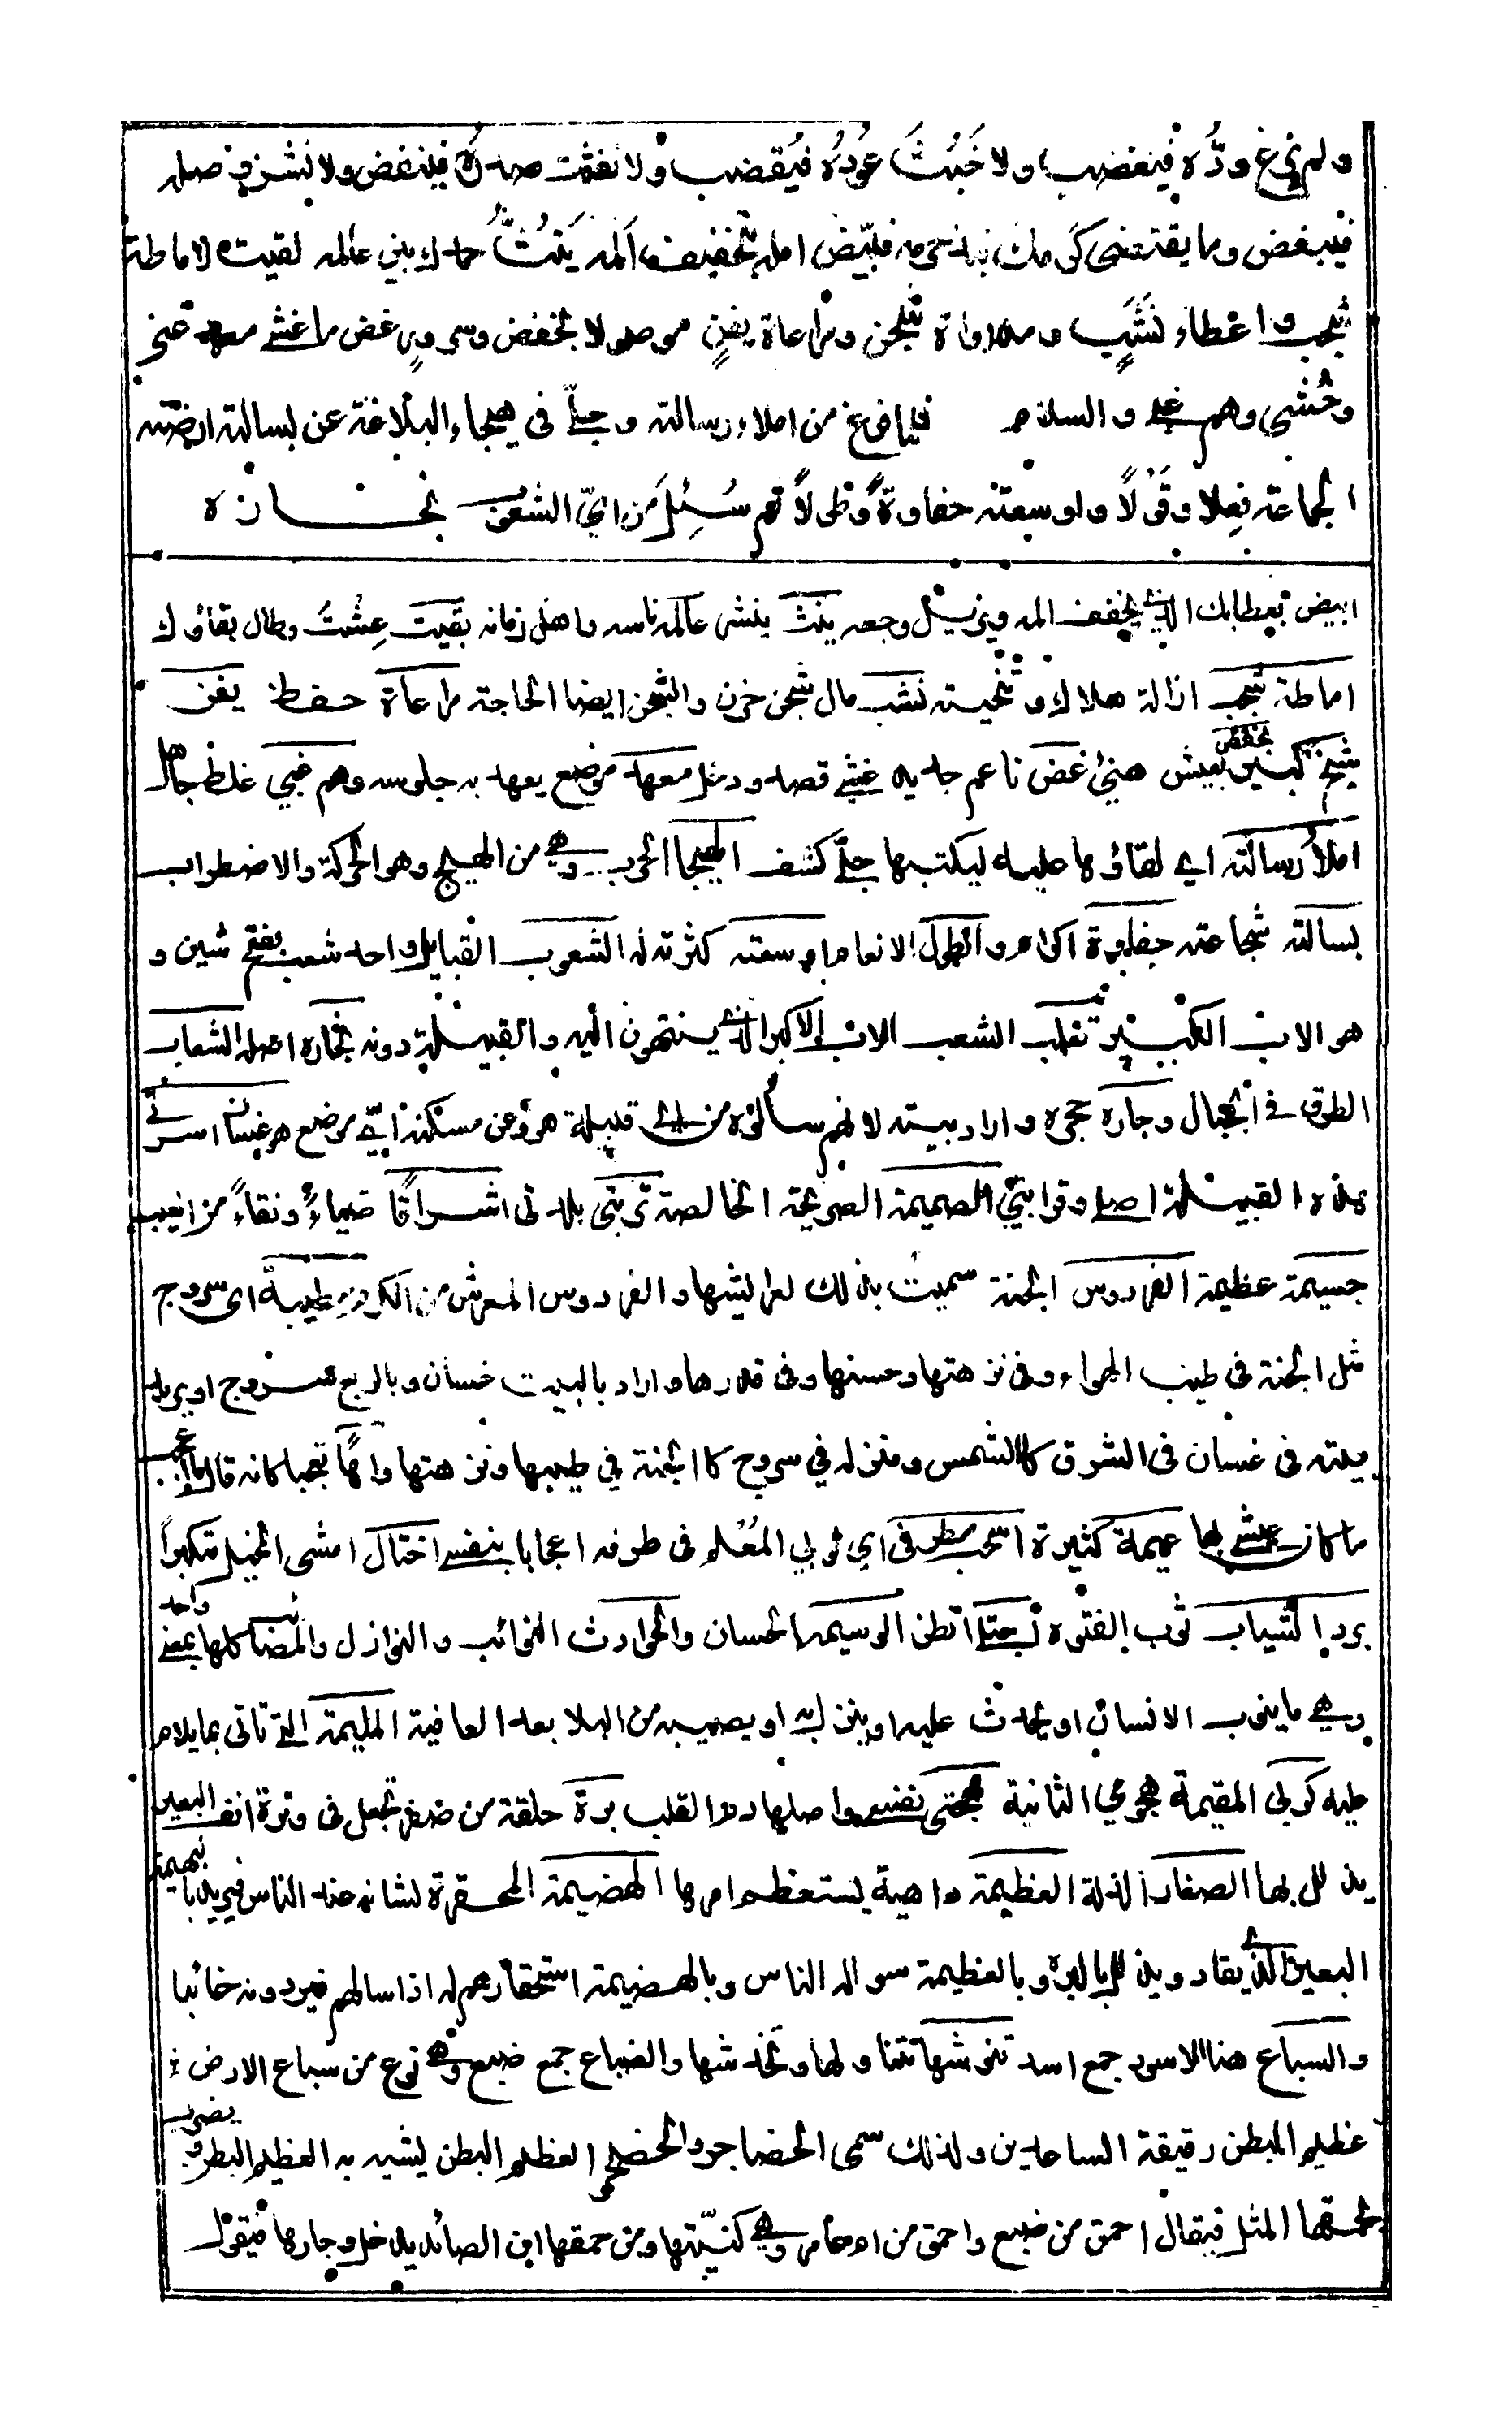 ولم يزغ ودّه فيغضب ولا خَبُثَ عُودُه فيُقضب ولا نفث صدره فينفض ولا نشز وصله
فيبغض وما يقتضي كرمك نبذ حرمه فبيّض امله بتخفيف المه يَنُثُّ حمدك بين عالمه بقيت لاماطة
شجب واعطاء نَشَبٍ ومداواة شجن ومراعاة يفنٍ موصولا بخفض وسرور غض ما غشي معهد غني
وخُشي وهم غبي والسلام فلما فرغ من املاء رسالته وجلّى في هيجاء البلاغة عن بسالته ارضته
الجماعة فِعلا وقَوْلًا واوسعته حفاوةً وطَولاً ثم سُئِلَ من ايّ الشعوب نجاره
ابيض بعطائك الذي يخفف المه ويزيل وجعه ينث ينشر عالمه ناسه واهل زمانه بقيت عِشْتَ وطال بقاؤك
اماطة شجب ازالة هلاك وتنحيته نشب مال شجن حزن والشجن ايضا الحاجة مراعاة حفظ يفن
شيخ كبير بخفض بعيش هنيئ غض ناعم جديد غشي قصد ودخل معهد موضع يعهد به جلوسه وهم غبي غلط جاهل
املأ رسالته اي القاؤها عليه ليكتبها جلّى كشف الهيجا الحرب وهي من الهيج وهو الحركة والاضطراب
بسالته شجاعته حفاوة اكرام والطول الانعام اوسعته كثرته له الشعوب القبايل واحد شعب بفتح شين و
هو الاب الكبير تغلب الشعب الاب الاكبر الذي ينتهون اليه والقبيلة دونه نجاره اصله الشعاب
الطرق في الجبال وجاره حجره واراد بيته لانهم سألوه من اي قبيلة هو وعن مسكنه في اي موضع هو غسان اسرتي
هذه القبيلة اصلي وقرابتي الصميمة الصريحة الخالصة تربتي بلدتي اشراقا ضياءً ونقاءً من العيب
جسيمة عظيمة الفردوس الجنة سميت بذلك لعرايشها والفردوس المعرش من الكروم طيبة اي سروج
مثل الجنة في طيب الهواء وفي نزهتها وحسنها وفي قدرها واراد بالبيت غسان وبالربع سروج اويريد
بيته في غسان في الشرق كالشمس ومنزله في سروج كالجنة في طيبها ونزهتها واهًا تعجبا كانه قال ما اعجب
ما كان عيشي بها عميمة كثيرة اسحب مطرفي اي ثوبي المُعْلم في طرفه اعجابا بنفسي اختال امشي الخيل متكبرًا
برد الشباب ثوب الفتوة اجتلي انظر الوسيم الحسان والحوادث النوائب والنوازل والمصائب كلها بمعنى واحد
وهي ما ينوب الانسان او يحدث عليه او ينزل به او يصيبه من البلا بعد العافية المليمة التي تاتي بما يلام
عليه كربي المقيمة همومي الثانية مهجتي نفسي واصلها دم القلب برة حلقة من صفر تجعل في وترة انف البعير
يذلل بها الصغار الذلة العظيمة داهية يستعظم امرها الهضيمة المحقرة لشانه عند الناس فيريد بالبهيمة
البعير الذي يقاد ويذلل بالبرة وبالعظيمة سواله الناس وبالهضيمة استحقارهم له اذا سالهم فيردونه خائبا
والسباع هنا الاسود جمع اسد تنوشها تتناولها وتخدشها والضباع جمع ضبع وهي نوع من سباع الارض
عظيم البطن رقيقة الساعدين ولذلك سمي الحضاجر والحضجر العظيم البطن ليشبه به العظيم البطن ويضرب
بحمقها المثل فيقال احمق من ضبع واحمق من ام عامر وهي كنيّتها ومن حمقها ان الصائد يدخل وجارها فيقول